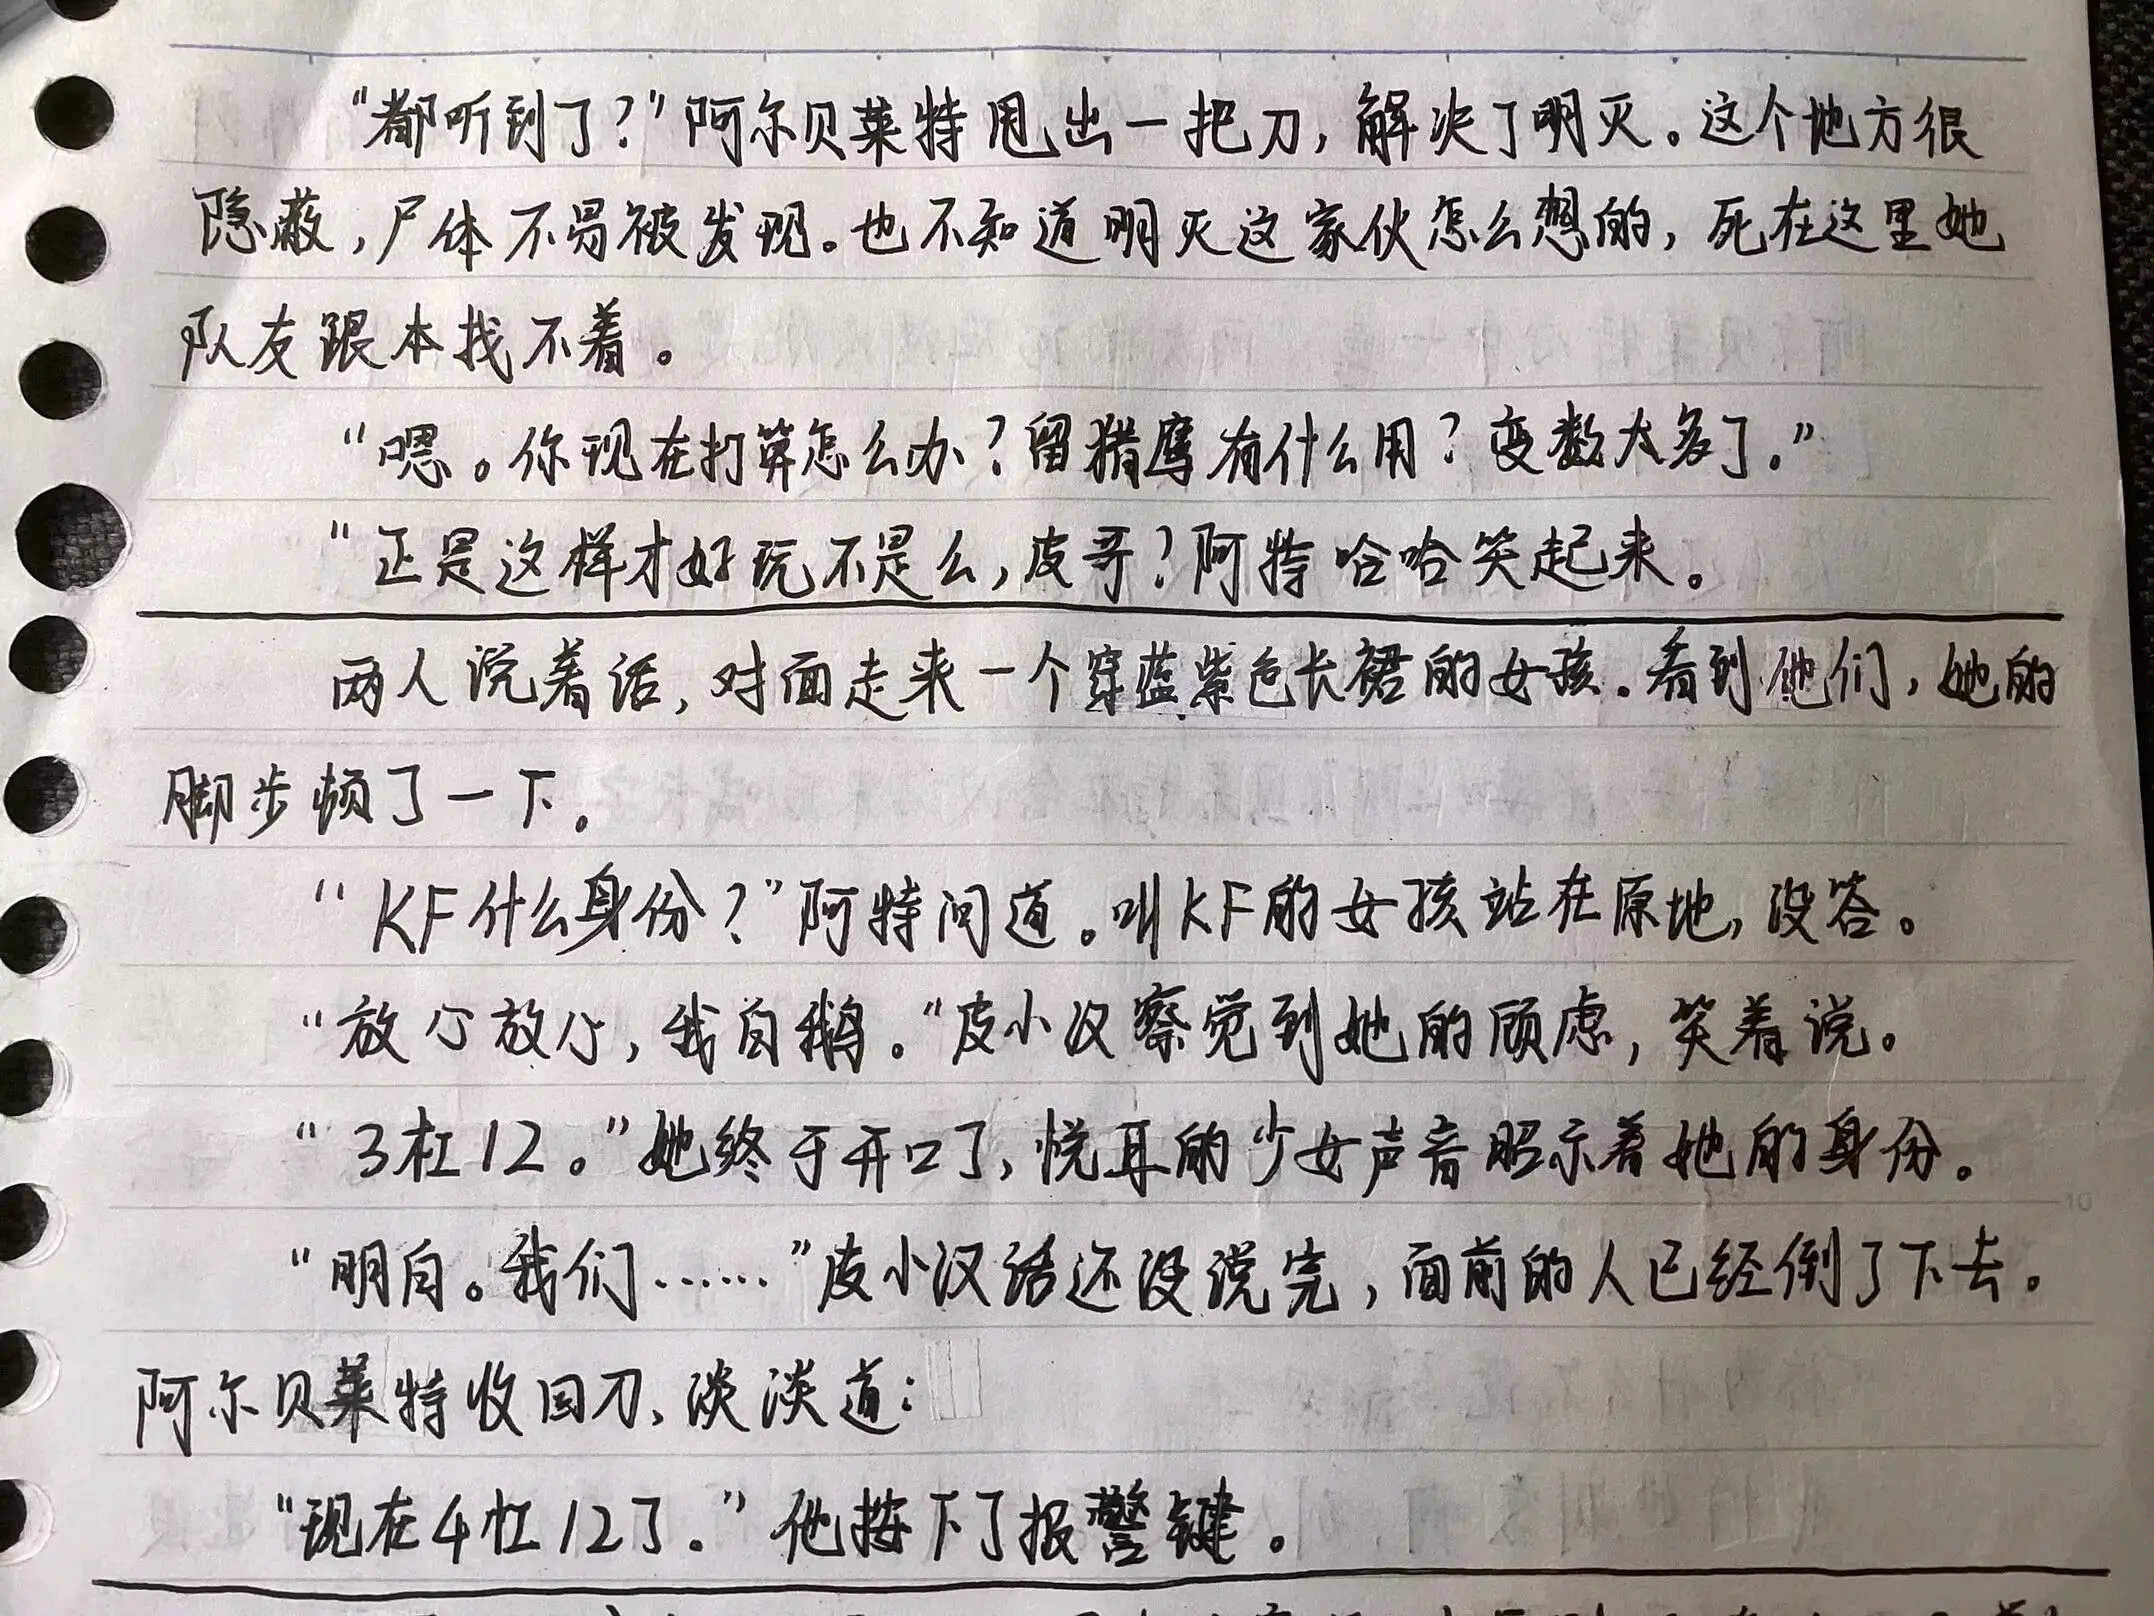 “都听到了？”阿尔贝莱特甩出一把刀，解决了明灭。这个地方很
隐蔽，尸体不易被发现。也不知道明灭这家伙怎么想的，死在这里她
队友跟本找不着。
“嗯。你现在打算怎么办？留猎鹰有什么用？变数太多了。”
“正是这样才好玩不是么，皮哥？阿特哈哈笑起来。
两人说着话，对面走来一个穿蓝紫色长裙的女孩。看到他们，她的
脚步顿了一下。
“KF什么身份？”阿特问道。叫KF的女孩站在原地，没答。
“放心放心，我白鹅。”皮小汉察觉到她的顾虑，笑着说。
“3杠12。”她终于开口了，悦耳的少女声音昭示着她的身份。
“明白。我们……”皮小汉话还没说完，面前的人已经倒了下去。
阿尔贝莱特收回刀、淡淡道：
“现在4杠12了。”他按下了报警键。